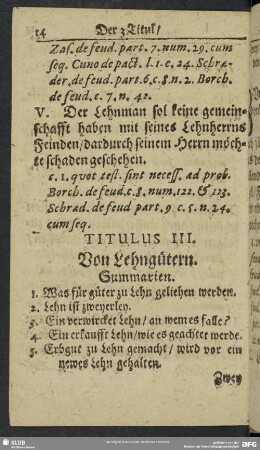 14 Der 3. Titul/
Zas. de feud. part. 7. num. 29. cum
seq. Cuno de pact. l. 1. c. 24. Schra-
der. de feud. part. 6. c. 8. n. 2. Borch.
de feud. c. 7. n. 42.
V. Der Lehnman sol keine gemein-
schafft haben mit seines Lehnherrns
Feinden/dardurch seinem Herrn möch-
te schaden geschehen.
c. 1. qvot test. sint necess. ad prob.
Borch. de feud. c. 8. num. 122. & 123.
Schrad. de feud part. 9 c. 5. n. 24.
cum seq.
TITULUS III.
Von Lehngütern.
Summarien.
1. Was für güter zu Lehn geliehen werden.
2. Lehn ist zweyerley.
3. Ein verwircket Lehn/ an wem es falle?
4. Ein erkaufft Lehn/wie es geachtet werde.
5. Erbgut zu Lehn gemacht/ wird vor ein
newes Lehn gehalten.
Zwey
SLUB
DFG